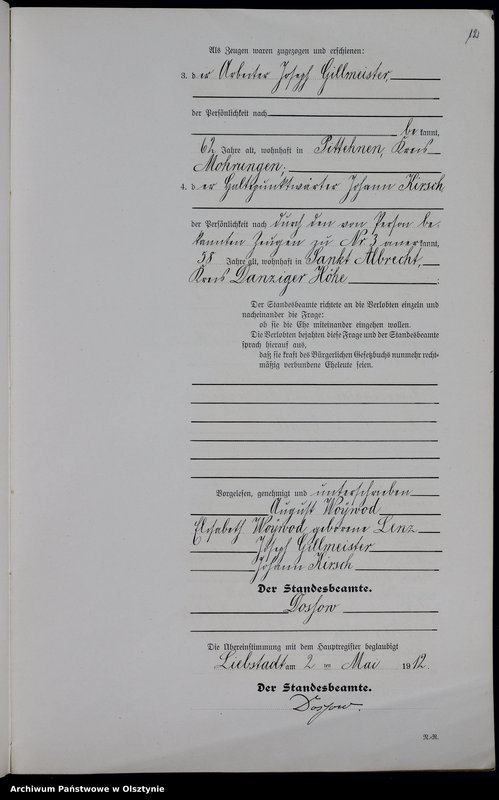 12
Als Zeugen waren zugezogen und erschienen:
3. der Arbeiter Joseph Gillmeister,
der Persönlichkeit nach
bekannt,
62 Jahre alt, wohnhaft in Pittehnen, Kreis
Mohrungen;
4. der Haltepunktwärter Johann Kirsch
der Persönlichkeit nach durch den von Person be-
kannten Zeugen zu Nr. 3 anerkannt,
58 Jahre alt, wohnhaft in Sankt Albrecht,
Kreis Danziger Höhe.
Der Standesbeamte richtete an die Verlobten einzeln und
nacheinander die Frage:
ob sie die Ehe miteinander eingehen wollen.
Die Verlobten bejahten diese Frage und der Standesbeamte
sprach hierauf aus,
daß sie kraft des Bürgerlichen Gesetzbuchs nunmehr recht-
mäßig verbundene Eheleute seien.
Vorgelesen, genehmigt und unterschrieben
August Woywod
Elisabeth Woywod geborene Lenz
Joseph Gillmeister
Johann Kirsch
Der Standesbeamte.
Dossow
Die Übereinstimmung mit dem Hauptregister beglaubigt
Liebstadt am 2ten Mai 1912.
Der Standesbeamte.
Dossow.
Archiwum Państwowe w Olsztynie